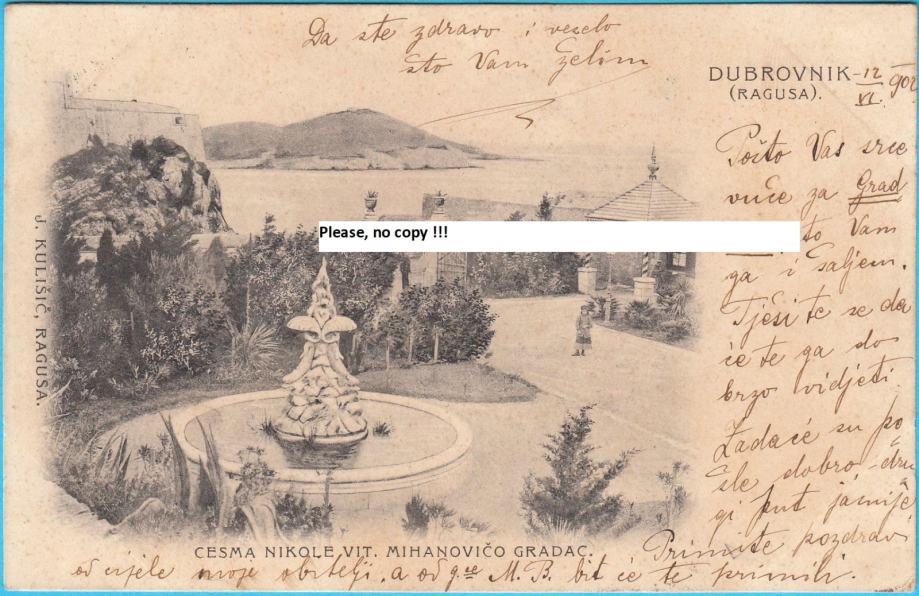 Da ste zdravo i veselo
sto Vam želim
DUBROVNIK
(RAGUSA).
12/VI 902
Pošto Vas srce
vuče za Grad
to Vam
ga i šaljem.
Tješite se da
će te ga do
brzo vidjeti
Zadaće su po
šle dobro - dru
gi put jasnije
Primite pozdrav
od cijele moje obitelji, a od gce M. B. bit će te primili.
Please, no copy !!!
J. KULIŠIĆ, RAGUSA.
CESMA NIKOLE VIT. MIHANOVIČO GRADAC.